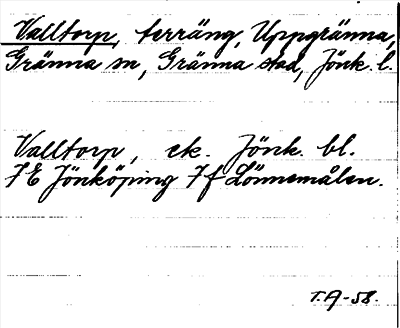 Valltorp, terräng, Uppgränna,
Gränna sn, Gränna stad, Jönk. l.
Valltorp, ek. Jönk. bl.
7E Jönköping 7f Lönnemålen.
T.A-58.